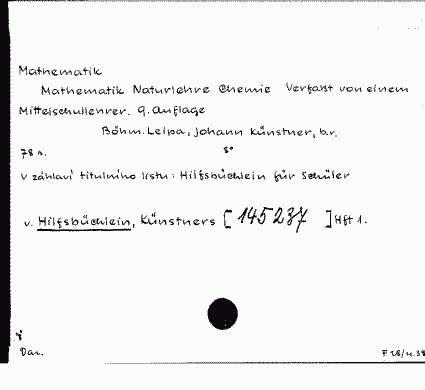 Mathematik
Mathematik Naturlehre Chemie Verfaßt von einem
Mittelschullehrer. 9. Auflage
Böhm. Leipa, Johann Künstner, b.r.
78 s. 8°
V záhlaví titulního listu: Hilfsbüchlein für Schüler
v. Hilfsbüchlein, Künstners [ 145237 ] Hft 1.
Dar.